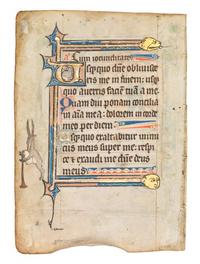 Usq̄quo dñe obliuisce
ris me in finem: usq̄
quo auertis faciē tuā a me
Quam diu ponam concilia
in aīa mea: dolorem in corde
meo per diem
Usq̄quo exaltabitur inimi
cus meus super me: respi
ce et exaudi me dñe deus
meus